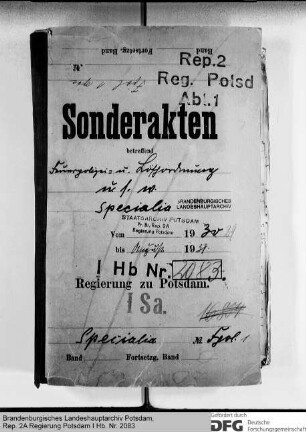 Fortsetzg. Band Band
Nr.
Rep.2
Reg. Potsd
Abt.1
Sonderakten
betreffend
Feuerpolizei- u. Löschordnung
u. s. w.
Specialia
BRANDENBURGISCHES
LANDESHAUPTARCHIV
STAATSARCHIV POTSDAM
Pr. Br. Rep. 2A
Regierung Potsdam
Vom 1930
bis August 1931
I Hb Nr. 2083.
Regierung zu Potsdam.
I Sa.
Specialia
Band Fortsetzg. Band
Brandenburgisches Landeshauptarchiv Potsdam,
Rep. 2A Regierung Potsdam I Hb, Nr. 2083
Gefördert durch
DFG Deutsche
Forschungsgemeinschaft